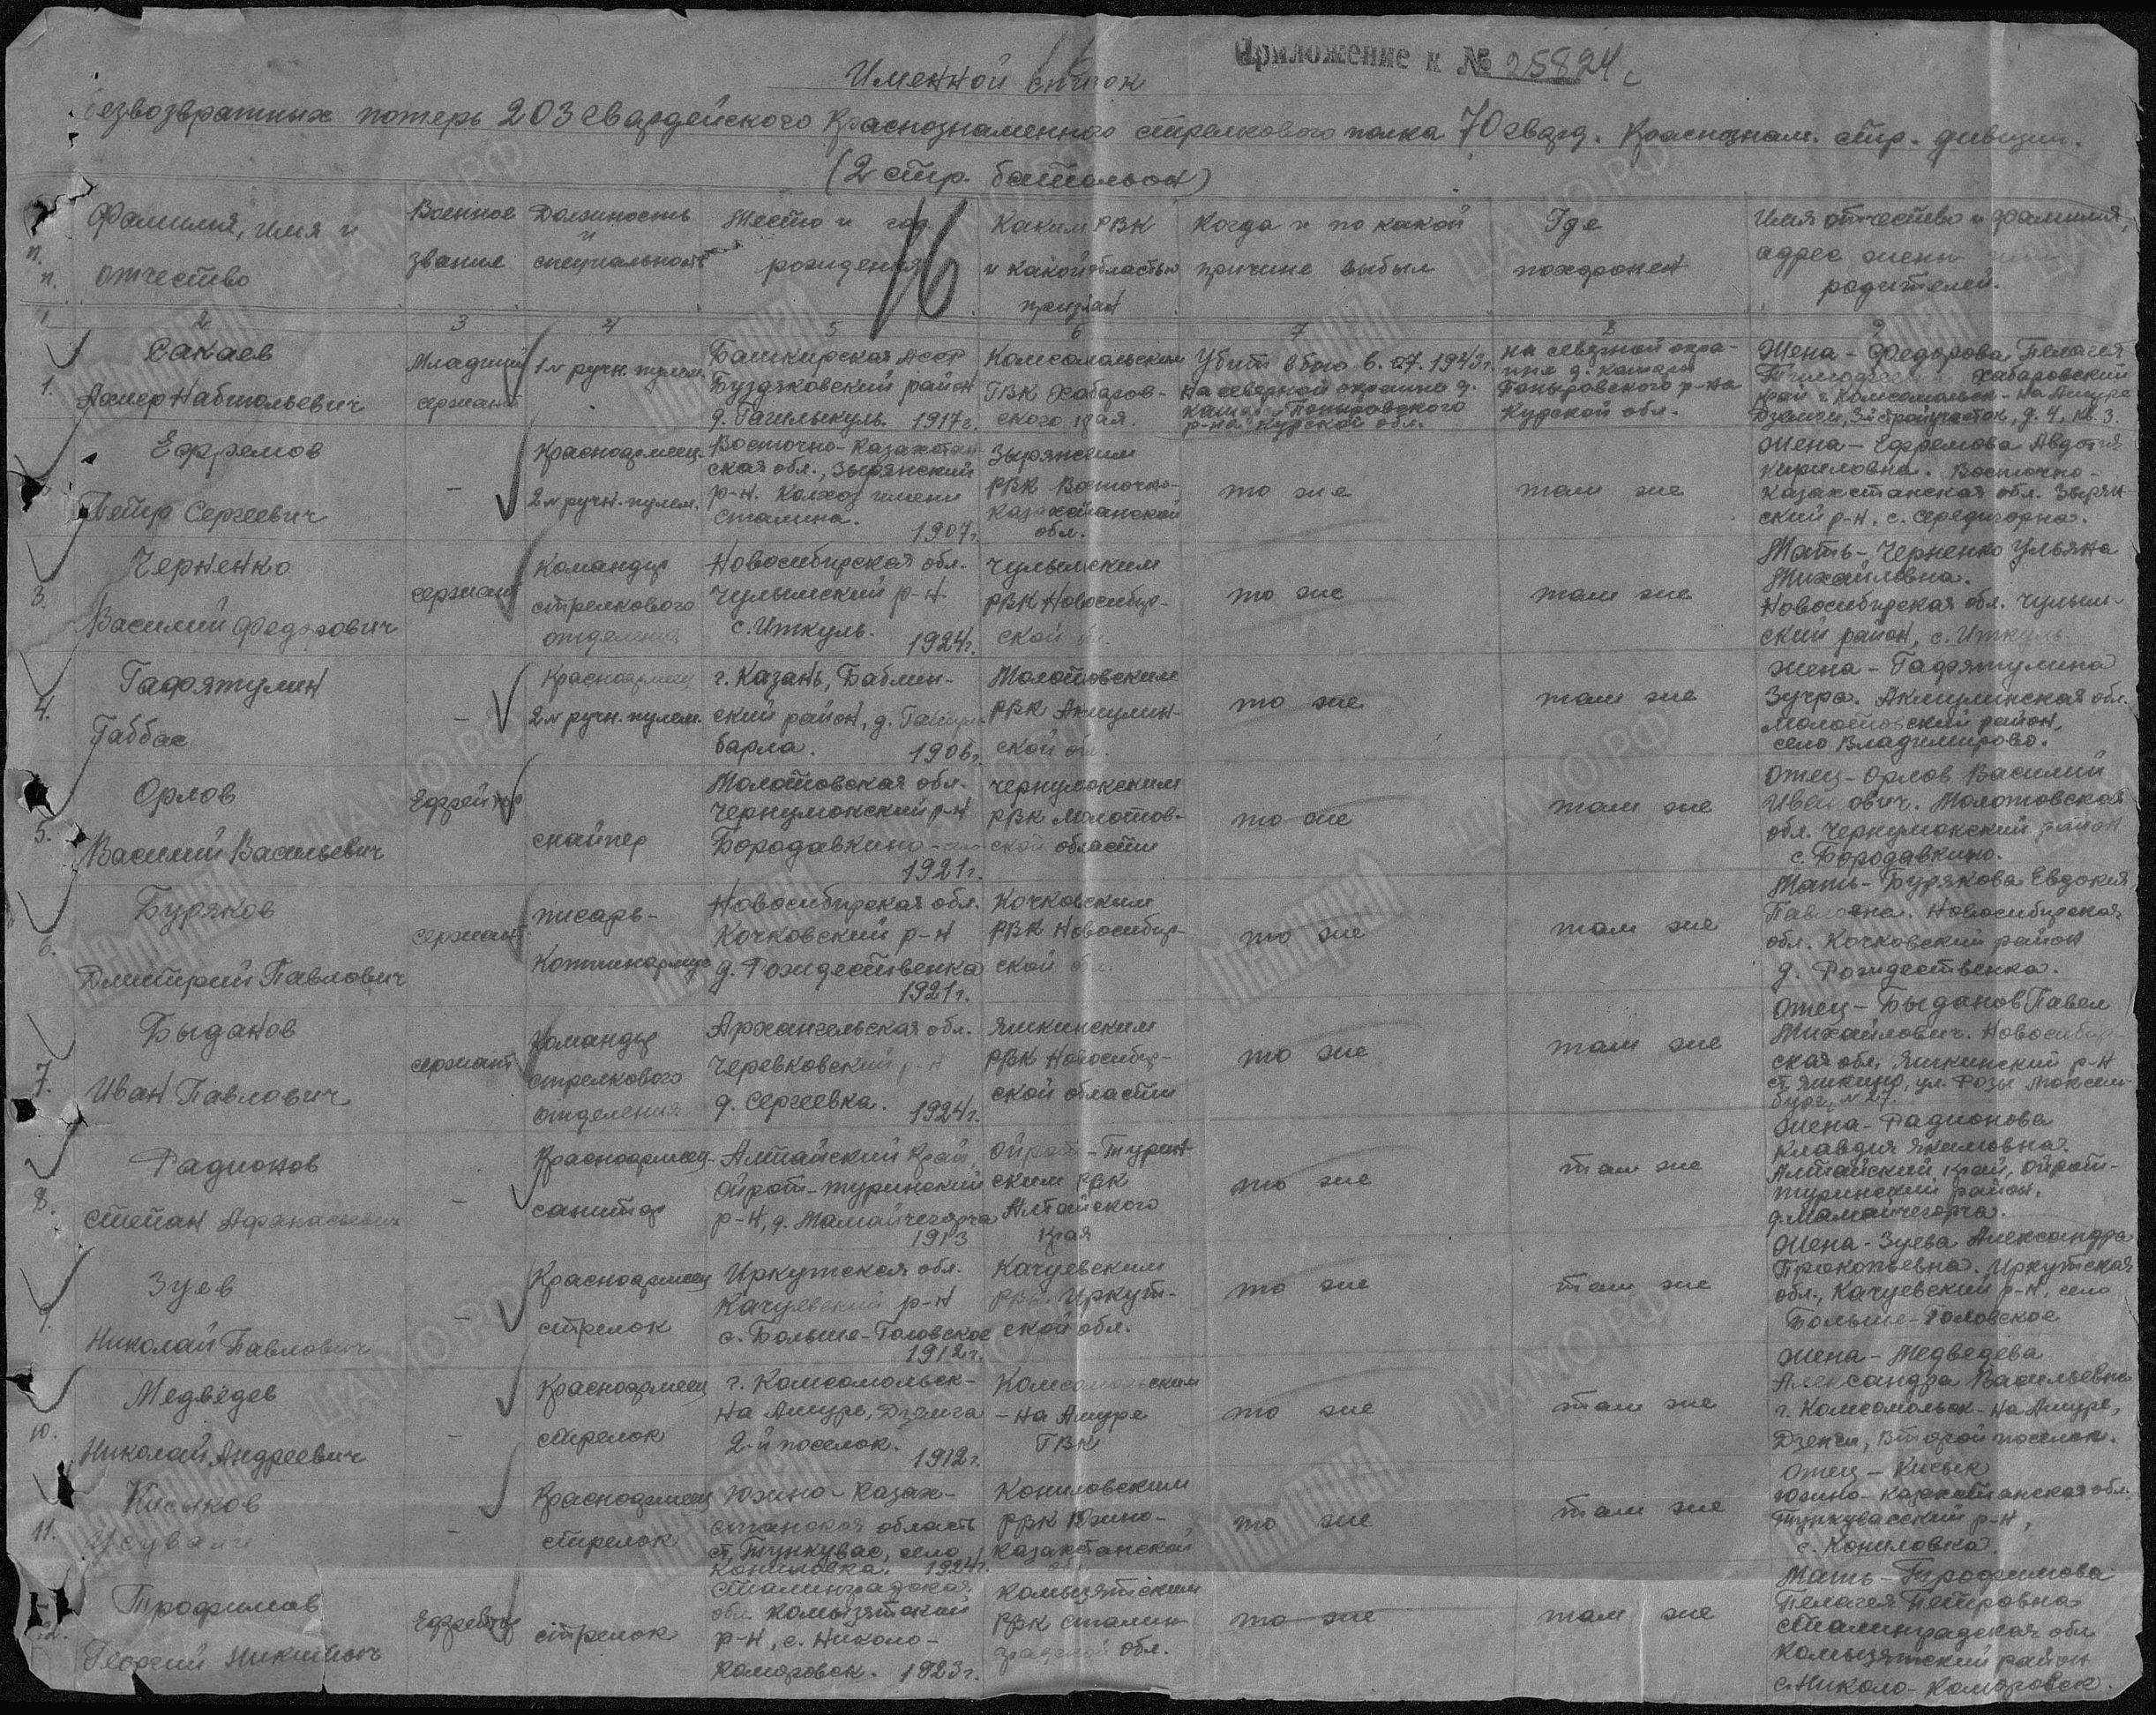 Приложение к № 25824с
Именной список
безвозвратных потерь 203 гвардейского Краснознаменного стрелкового полка 70 гвард. Краснознам. стр. дивизии.
(2 стр. батальон)
16
п. п.
Фамилия, имя и отчество
Военное звание
Должность и специальность
Место и год рождения
Каким РВК и какой областью призван
Когда и по какой причине выбыл
Где похоронен
Имя отчество и фамилия, адрес жены или родителей.
1 2 3 4 5 6 7 8 9
1.
Сакаев
Ахмер Набиольевич
Младший
сержант
1 № ручн. пулем.
Башкирская АССР
Буздяковский район
1917г.
Комсомольским
ГВК Хабаров-
ского края.
Убит в бою 6.07.1943г.
на северной окраине д.
Поныровского
р-на Курской обл.
на северной окра-
ине д.
Поныровского р-на
Курской обл.
Жена - Федорова Пелагея
Хабаровский
край г. Комсомольск-на Амуре
Дземги, д. 4, кв. 3.
Ефремов
Петр Сергеевич
-
Красноармеец-
2 № ручн. пулем.
Восточно-Казахстан-
ская обл., Зырянский
р-н. Колхоз имени
Сталина.
1907г.
Зырянским
РВК Восточно-
Казахстанской
обл.
то же
там же
Жена - Ефремова Авдотия
Кириловна. Восточно-
Казахстанская обл. Зырян-
ский р-н. с. Середигорна.
3.
Черненко
Василий Федорович
сержант
Командир
стрелкового
отделения
Новосибирская обл.
Чулымский р-н
с. Иткуль.
1924г.
Чулымским
РВК Новосибир-
ской
то же
там же
Мать - Черненко Ульяна
Михайловна.
Новосибирская обл. Чулым-
ский район, с. Иткуль
4.
Гафятулин
Габбас
-
Красноармеец
2 № ручн. пулем.
г. Казань, Баблин-
ский район, д.
барла.
1906г.
Молотовским
РВК Акмулин-
ской обл.
то же
там же
Жена - Гафятулина
Зучра. Акмулинская обл.
Молотовский район,
село Владимирово.
5.
Орлов
Василий Васильевич
Ефрейтор
снайпер
Молотовская обл.
Чернушокский р-н
Бородавкино-
1921г.
Чернушокским
РВК Молотов-
ской области
то же
там же
Отец - Орлов Василий
Иванович. Молотовская
обл. Чернушокский район
с. Бородавкино.
6.
Буряков
Дмитрий Павлович
сержант
писарь-
Каптенармус
Новосибирская обл.
Кочковский р-н
д. Рождественка
1921г.
Кочковским
РВК Новосибир-
ской обл.
то же
там же
Мать - Бурякова Евдокия
Павловна. Новосибирская
обл. Кочковский район
д. Рождественка.
7.
Быданов
Иван Павлович
сержант
Командир
стрелкового
отделения
Архангельская обл.
Черевковский р-н
д. Сергеевка.
1924г.
Яшкинским
РВК Новосибир-
ской области
то же
там же
Отец - Быданов Павел
Михайлович. Новосибир-
ская обл. Яшкинский р-н
ст. Яшкино, ул. Розы Люксем-
бург, № 27.
8.
Радионов
Степан Афанасьевич
-
Красноармеец-
санитар
Алтайский Край,
Ойрот-туринский
р-н, д. Мамайчегорга
1913
Ойрот-Турин-
ским РВК
Алтайского
края
то же
там же
Жена - Радионова
Клавдия Якимовна.
Алтайский край, Ойрот-
туринский район,
д. Мамайчегорга.
9.
Зуев
Николай Павлович
-
Красноармеец
стрелок
Иркутская обл.
Качуевский р-н
с. Больше-Головское
1912г.
Качуевским
РВК Иркут-
ской обл.
то же
там же
Жена - Зуева Александра
Прокопьевна. Иркутская
обл., Качуевский р-н, село
Больше-Головское
10.
Медведев
Николай Андреевич
-
Красноармеец
стрелок
г. Комсомольск-
На Амуре, Дземга
2-й поселок.
1912г.
Комсомольским
-на Амуре
ГВК
то же
там же
Жена - Медведева
Александра Васильевна
г. Комсомольск-на Амуре,
Дземги, Второй поселок.
11.
Кисыков
Усували
-
Красноармеец
стрелок
Южно-Казах-
станская область
ст. Тункувас, село
Кониловка. 1924г.
Кониловским
РВК Южно-
Казахстанской
то же
там же
Отец - Кисык
Южно-Казахстанская обл.
Тункувасский р-н,
с. Кониловка.
12.
Трофимов
Георгий Никитович
Ефрейтор
стрелок
Сталинградская
обл. Камызятский
р-н, с. Николо-
Комаровск. 1923г.
Камызятским
РВК Сталин-
градской обл.
то же
там же
Мать - Трофимова
Пелагея Петровна
Сталинградская обл
Камызятский район
с. Николо-Комаровск.